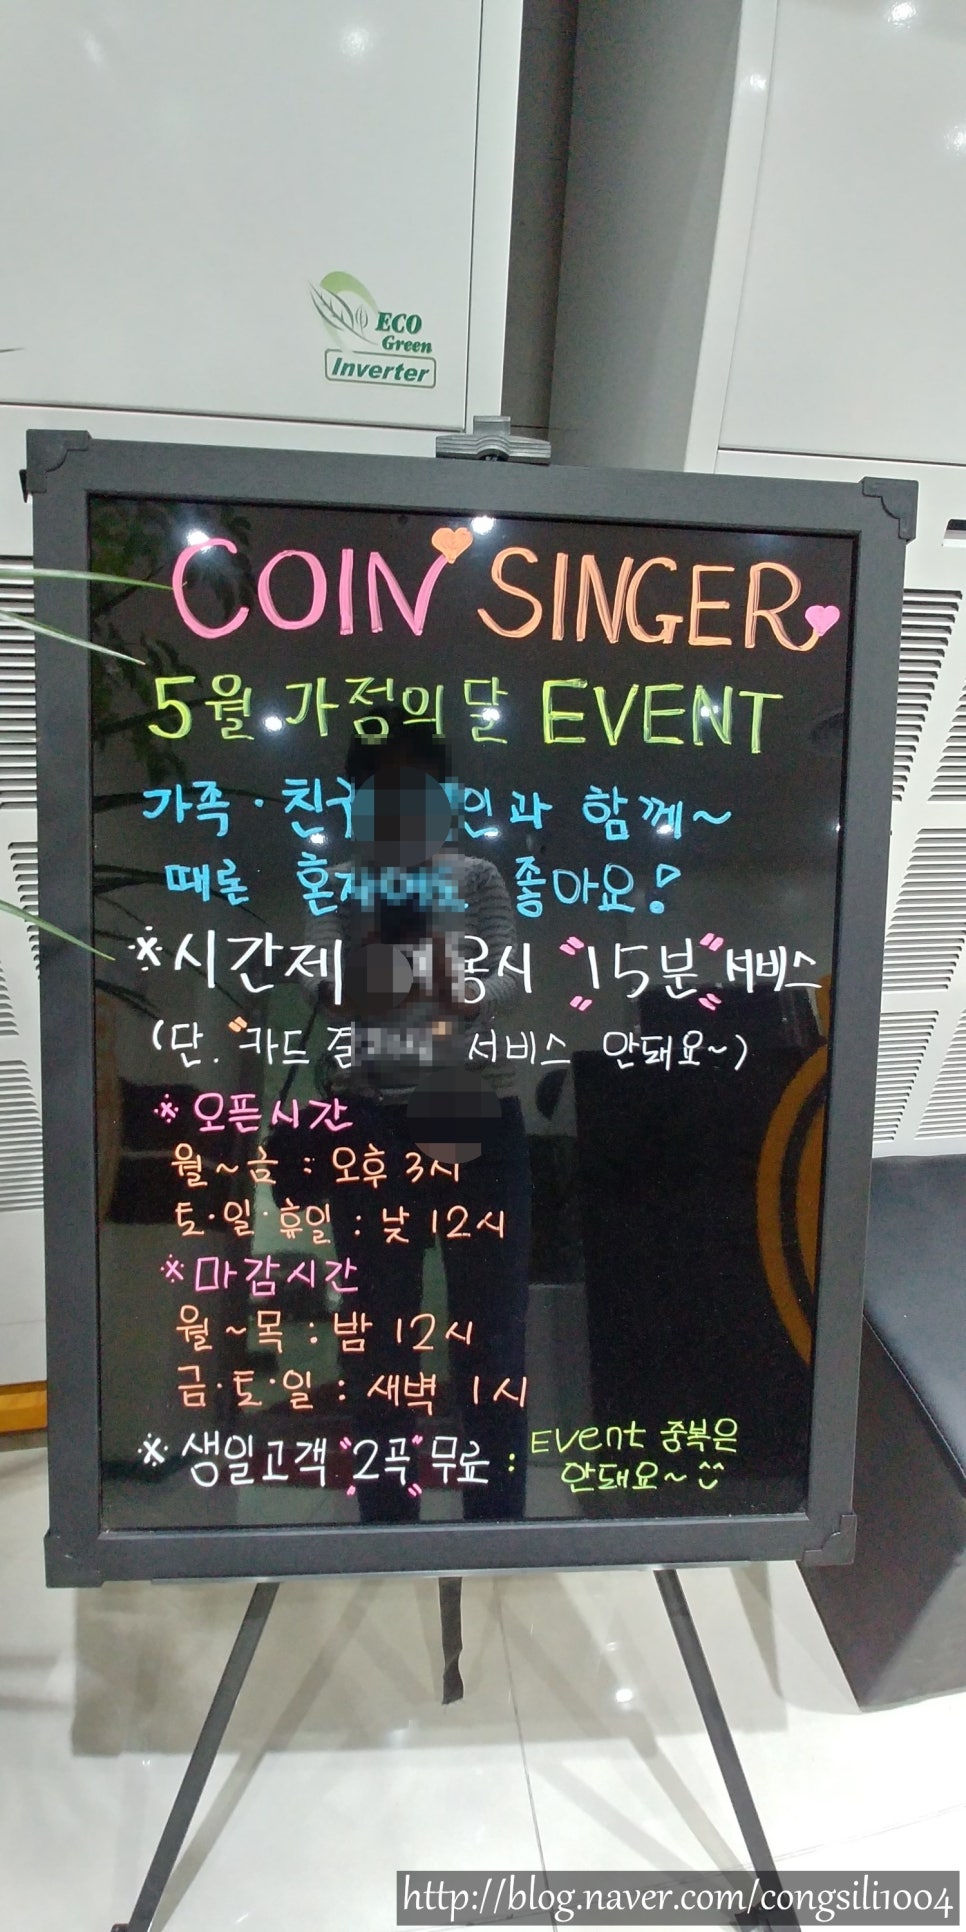 ECO
Green
Inverter
COIN SINGER
5월 가정의 달 EVENT
가족 · 함께~
때론 좋아요!
*시간제 "15분" 서비스
(단. "카드 서비스 안돼요~)
* 오픈시간
월~금 : 오후 3시
토·일·휴일 : 낮 12시
* 마감시간
월~목 : 밤 12시
금·토·일 : 새벽 1시
* 생일고객 "2곡" 무료 : Event 중복은
안돼요~ ^^
http://blog.naver.com/congsili1004